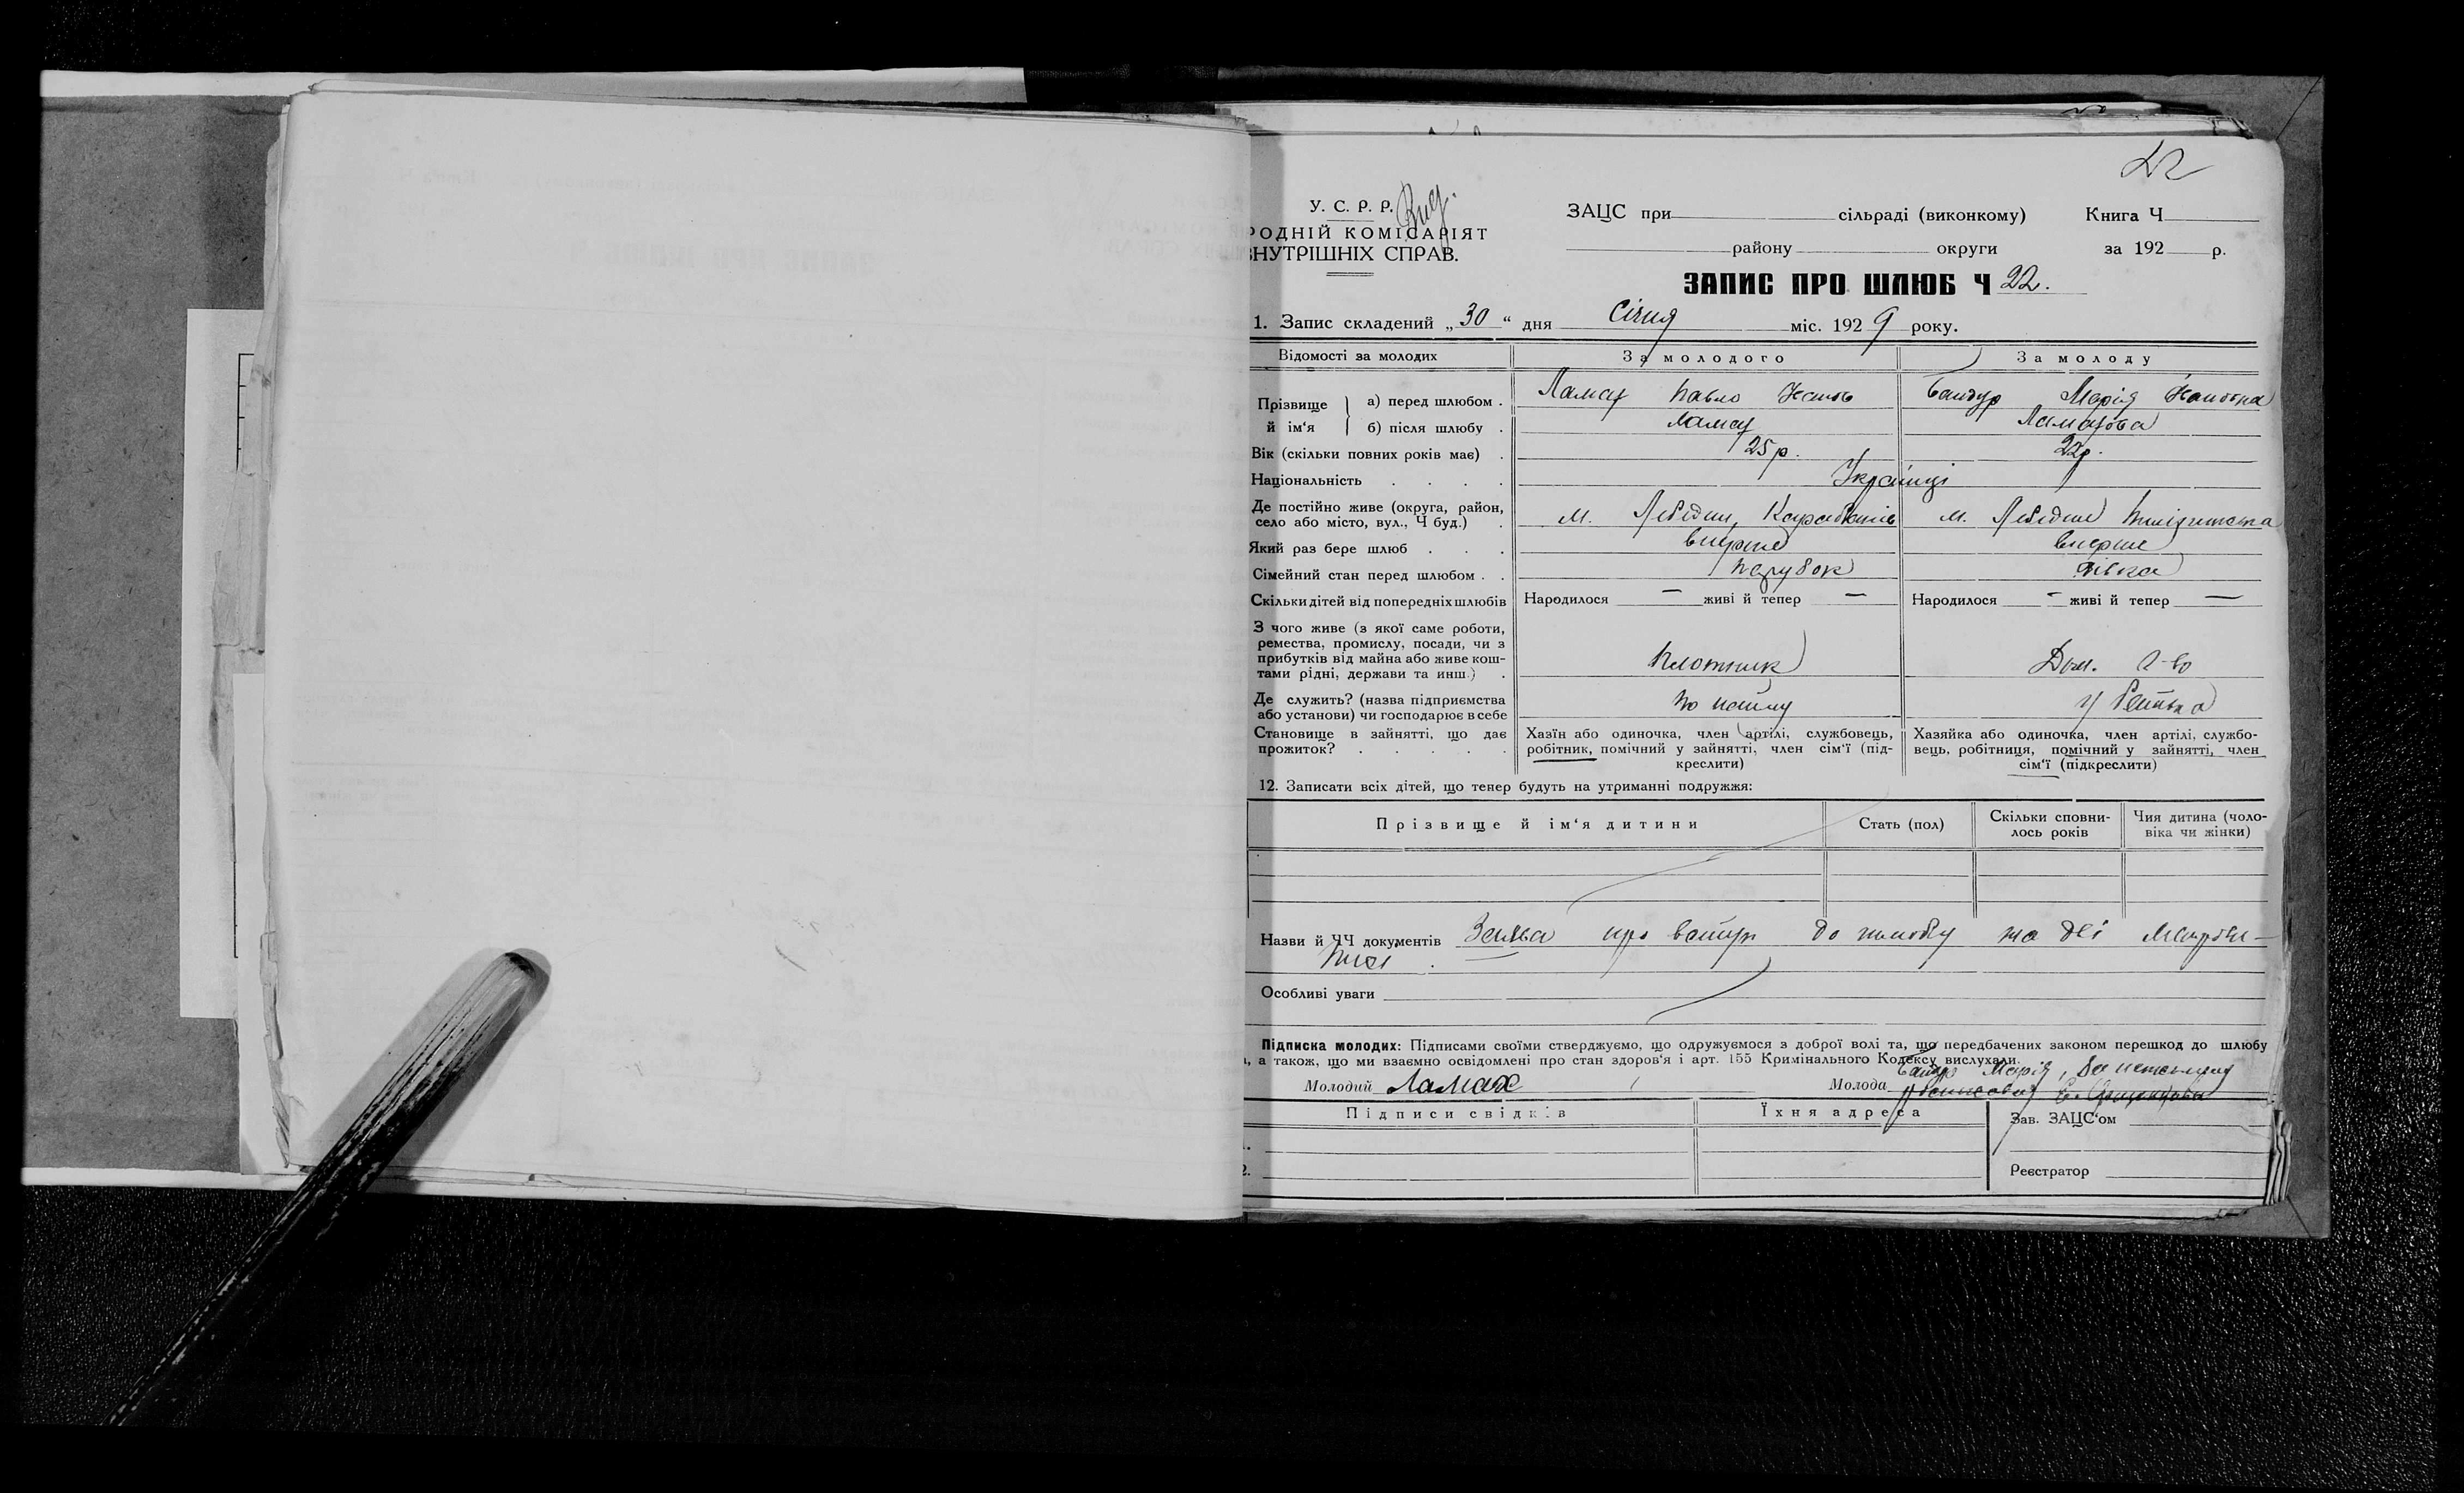 22
У. С. Р. Р.
РОДНІЙ КОМІСАРІЯТ
ВНУТРІШНІХ СПРАВ.
ЗАЦС при сільраді (виконкому) Книга Ч
району округи за 192 р.
ЗАПИС ПРО ШЛЮБ Ч 22.
1. Запис складений „30“ дня Січня міс. 1929 року.
Відомості за молодих За молодого За молоду
Прізвище й ім‘я а) перед шлюбом . Ламах Павло Бандур Марія
б) після шлюбу . Ламах Ламахова
Вік (скільки повних років має) . 25 р. 22 р.
Національність . . . . Українці
Де постійно живе (округа, район, село або місто, вул., Ч буд.) . м. Лебедин, м. Лебедин
Який раз бере шлюб . . . вперше вперше
Сімейний стан перед шлюбом . . парубок дівка
Скільки дітей від попередніх шлюбів Народилося — живі й тепер — Народилося — живі й тепер —
З чого живе (з якої саме роботи, ремества, промислу, посади, чи з прибутків від майна або живе коштами рідні, держави та инш.) . плотник Дом. г-во
Де служить? (назва підприємства або установи) чи господарює в себе по найму у батька
Становище в зайнятті, що дає прожиток? . . . . .
Хазїн або одиночка, член артілі, службовець, робітник, помічний у зайнятті, член сім‘ї (підкреслити)
Хазяйка або одиночка, член артілі, службовець, робітниця, помічний у зайнятті, член сім‘ї (підкреслити)
12. Записати всіх дітей, що тепер будуть на утриманні подружжя:
Прізвище й ім‘я дитини Стать (пол) Скільки сповнилось років Чия дитина (чоловіка чи жінки)
Назви й ЧЧ документів Заява про вступ до шлюбу та дві
Особливі уваги
Підписка молодих: Підписами своїми стверджуємо, що одружуємося з доброї волі та, що передбачених законом перешкод до шлюбу
, а також, що ми взаємно освідомлені про стан здоров‘я і арт. 155 Кримінального Кодексу вислухали.
Молодий Ламах Молода Бандур Марія,
Підписи свідків Їхня адреса Зав. ЗАЦС‘ом
Реєстратор